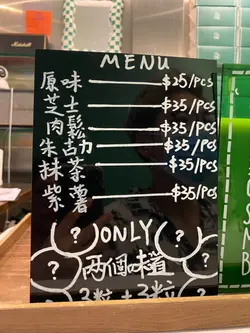 MENU
原味 $25/PCS
芝士 $35/PCS
肉鬆 $35/PCS
朱古力 $35/PCS
抹茶 $35/PCS
紫薯 $35/PCS
? ONLY ?
? 两個味道 ?
3粒+3粒